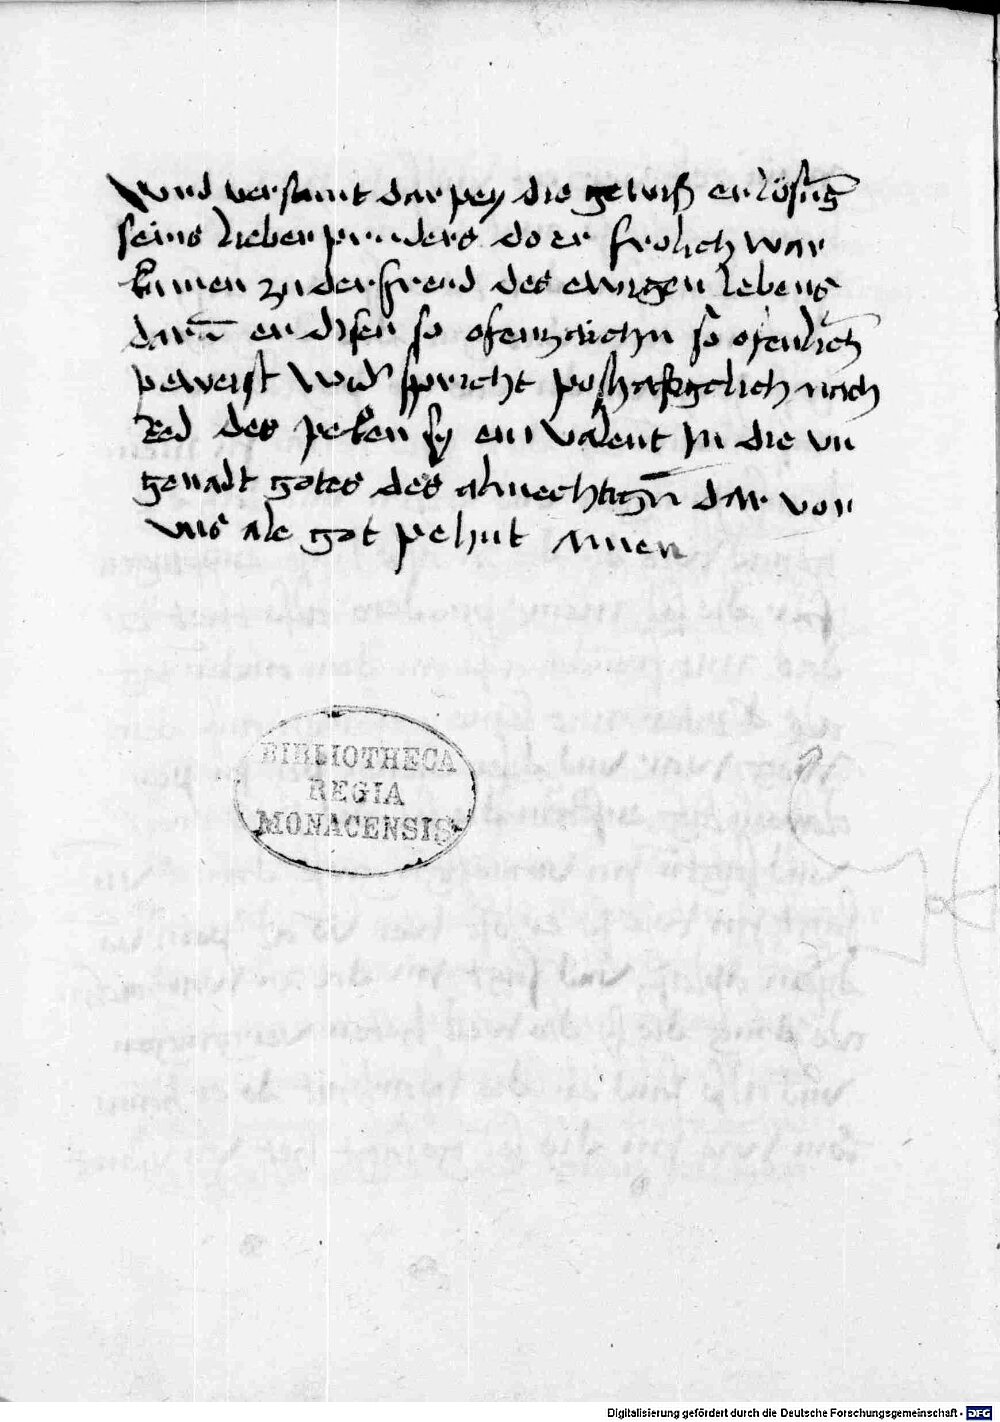 vnd versamt dar pey die gewiß erlösūg
seins lieber pruders do er frolich war
kumen zu der freud des ewigen lebens
darū er disen so ofenzaichn so ofenlich
peweist wid spricht poshafftgclich nach
Red des peken sy ein valent In die vn
genadt gotes des almechtign̄ dar von
vns ale got pehut Amen
BIBLIOTHECA
REGIA
MONACENSIS
Digitalisierung gefördert durch die Deutsche Forschungsgemeinschaft - DFG